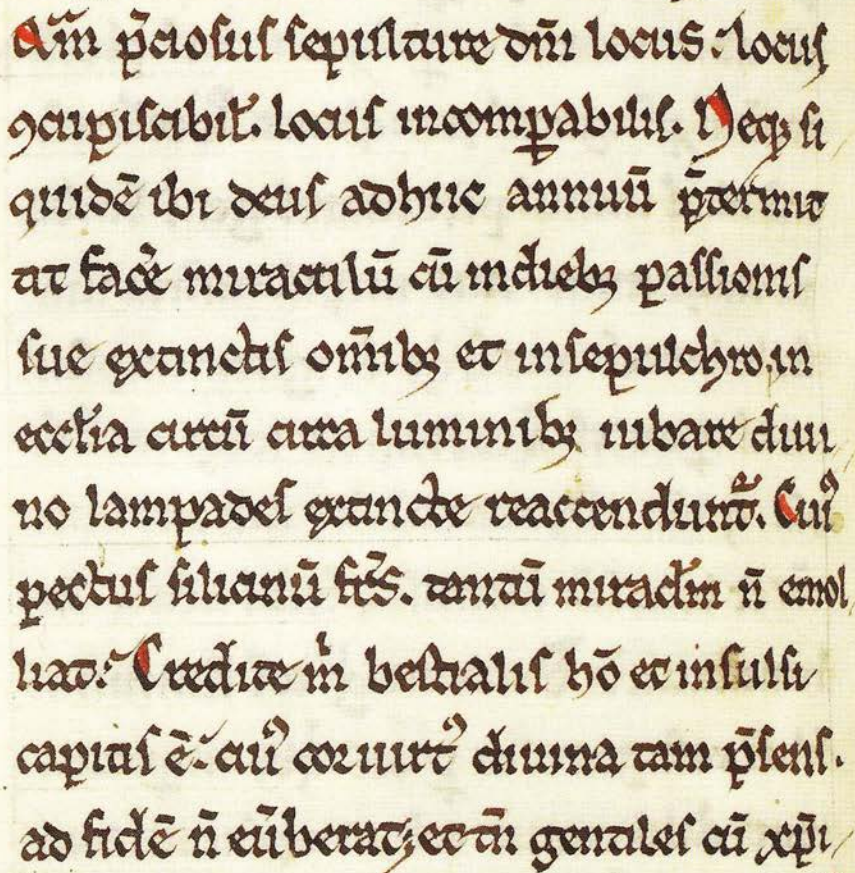 Qm̄ p̄ciosus sepulture dn̄i locus. locus
ꝯcupiscibil̓. locus incomꝑabilis. Neqꝫ si
quidē ibi deus adhuc annuū p̄termit
tit fac̓e miraculū cū in diebꝫ passionis
sue extinctis om̄ibꝫ et in sepulchro, in
eccl̓ia circū circa luminibꝫ iubare diui
no lampades extincte reaccendunt᷑. Cui᷒
pectus silicinū fr̄s. tantū miracl̓m n̄ emol
liat. Credite m̓ bestialis hō et insulsi
capitis ē. cui᷒ cor uirt᷒ diuina tam p̄sens.
ad fidē n̄ eūberat; et tn̄ gentiles cū xp̄i